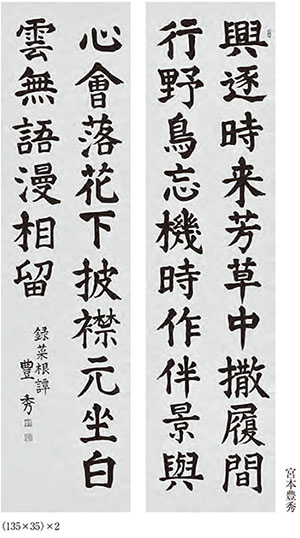 興逐時来芳草中撒履間
行野鳥忘機時作伴景與
心會落花下披襟兀坐白
雲無語漫相留
録菜根譚
豊秀
宮本豊秀
(135×35)×2